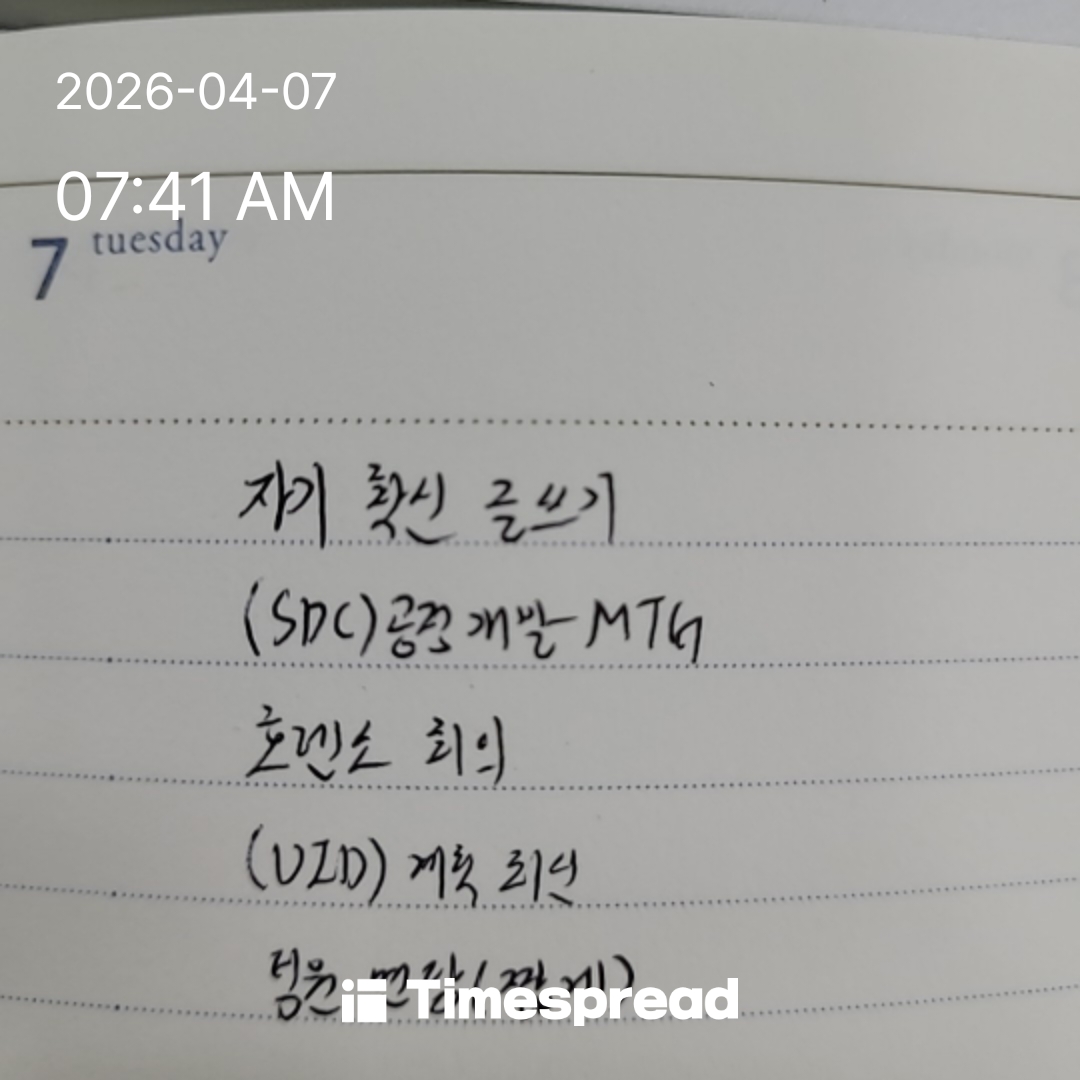 2026-04-07
07:41 AM
7 tuesday
자기 확신 글쓰기
(SDC) 공정 개발 MTG
호렌소 회의
(VID) 계획 회신
팀원 면담(
Timespread